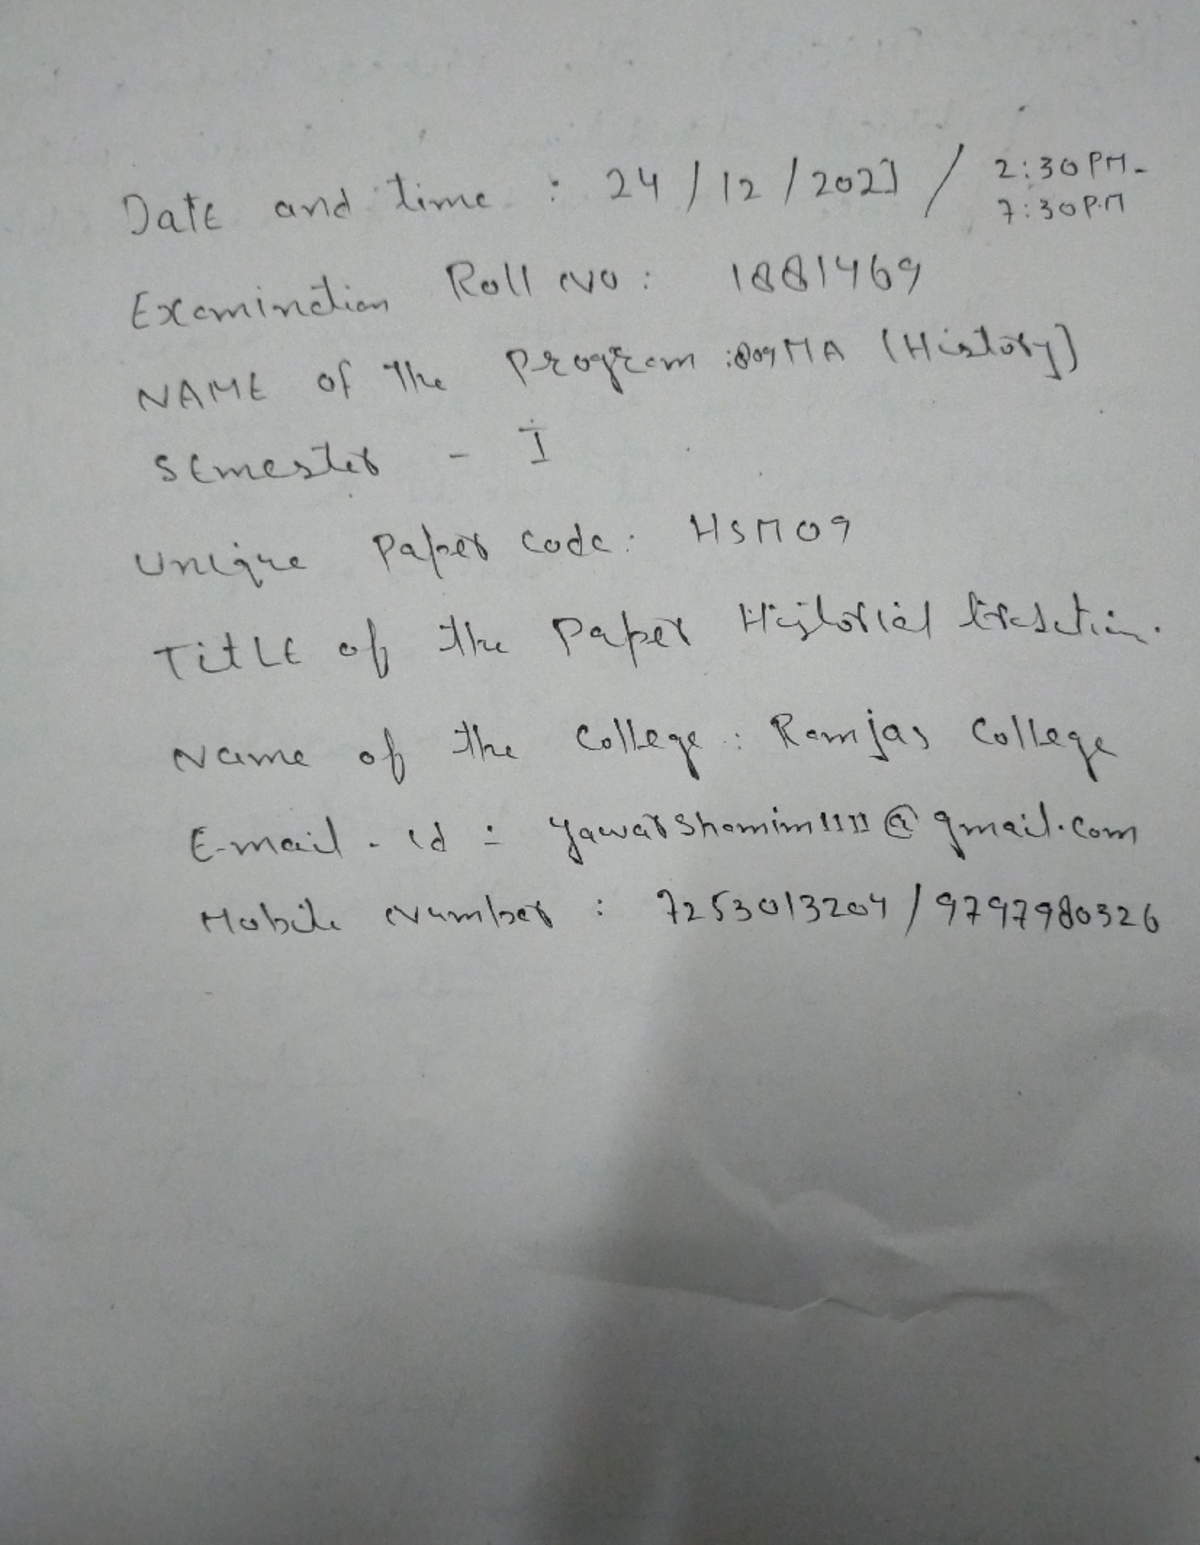 Date and time : 24/12/2021 / 2:30 PM-
7:30 P.M
Examination Roll No : 1881469
NAME of the Program : 809 MA (History)
Semester - I
Unique Paper Code : HSM09
TitLE of the Paper Historical tradition.
Name of the College : Ramjas College
E-mail - id : yawarshamim1111@gmail.com
Mobile Number : 7253013204/9797980326